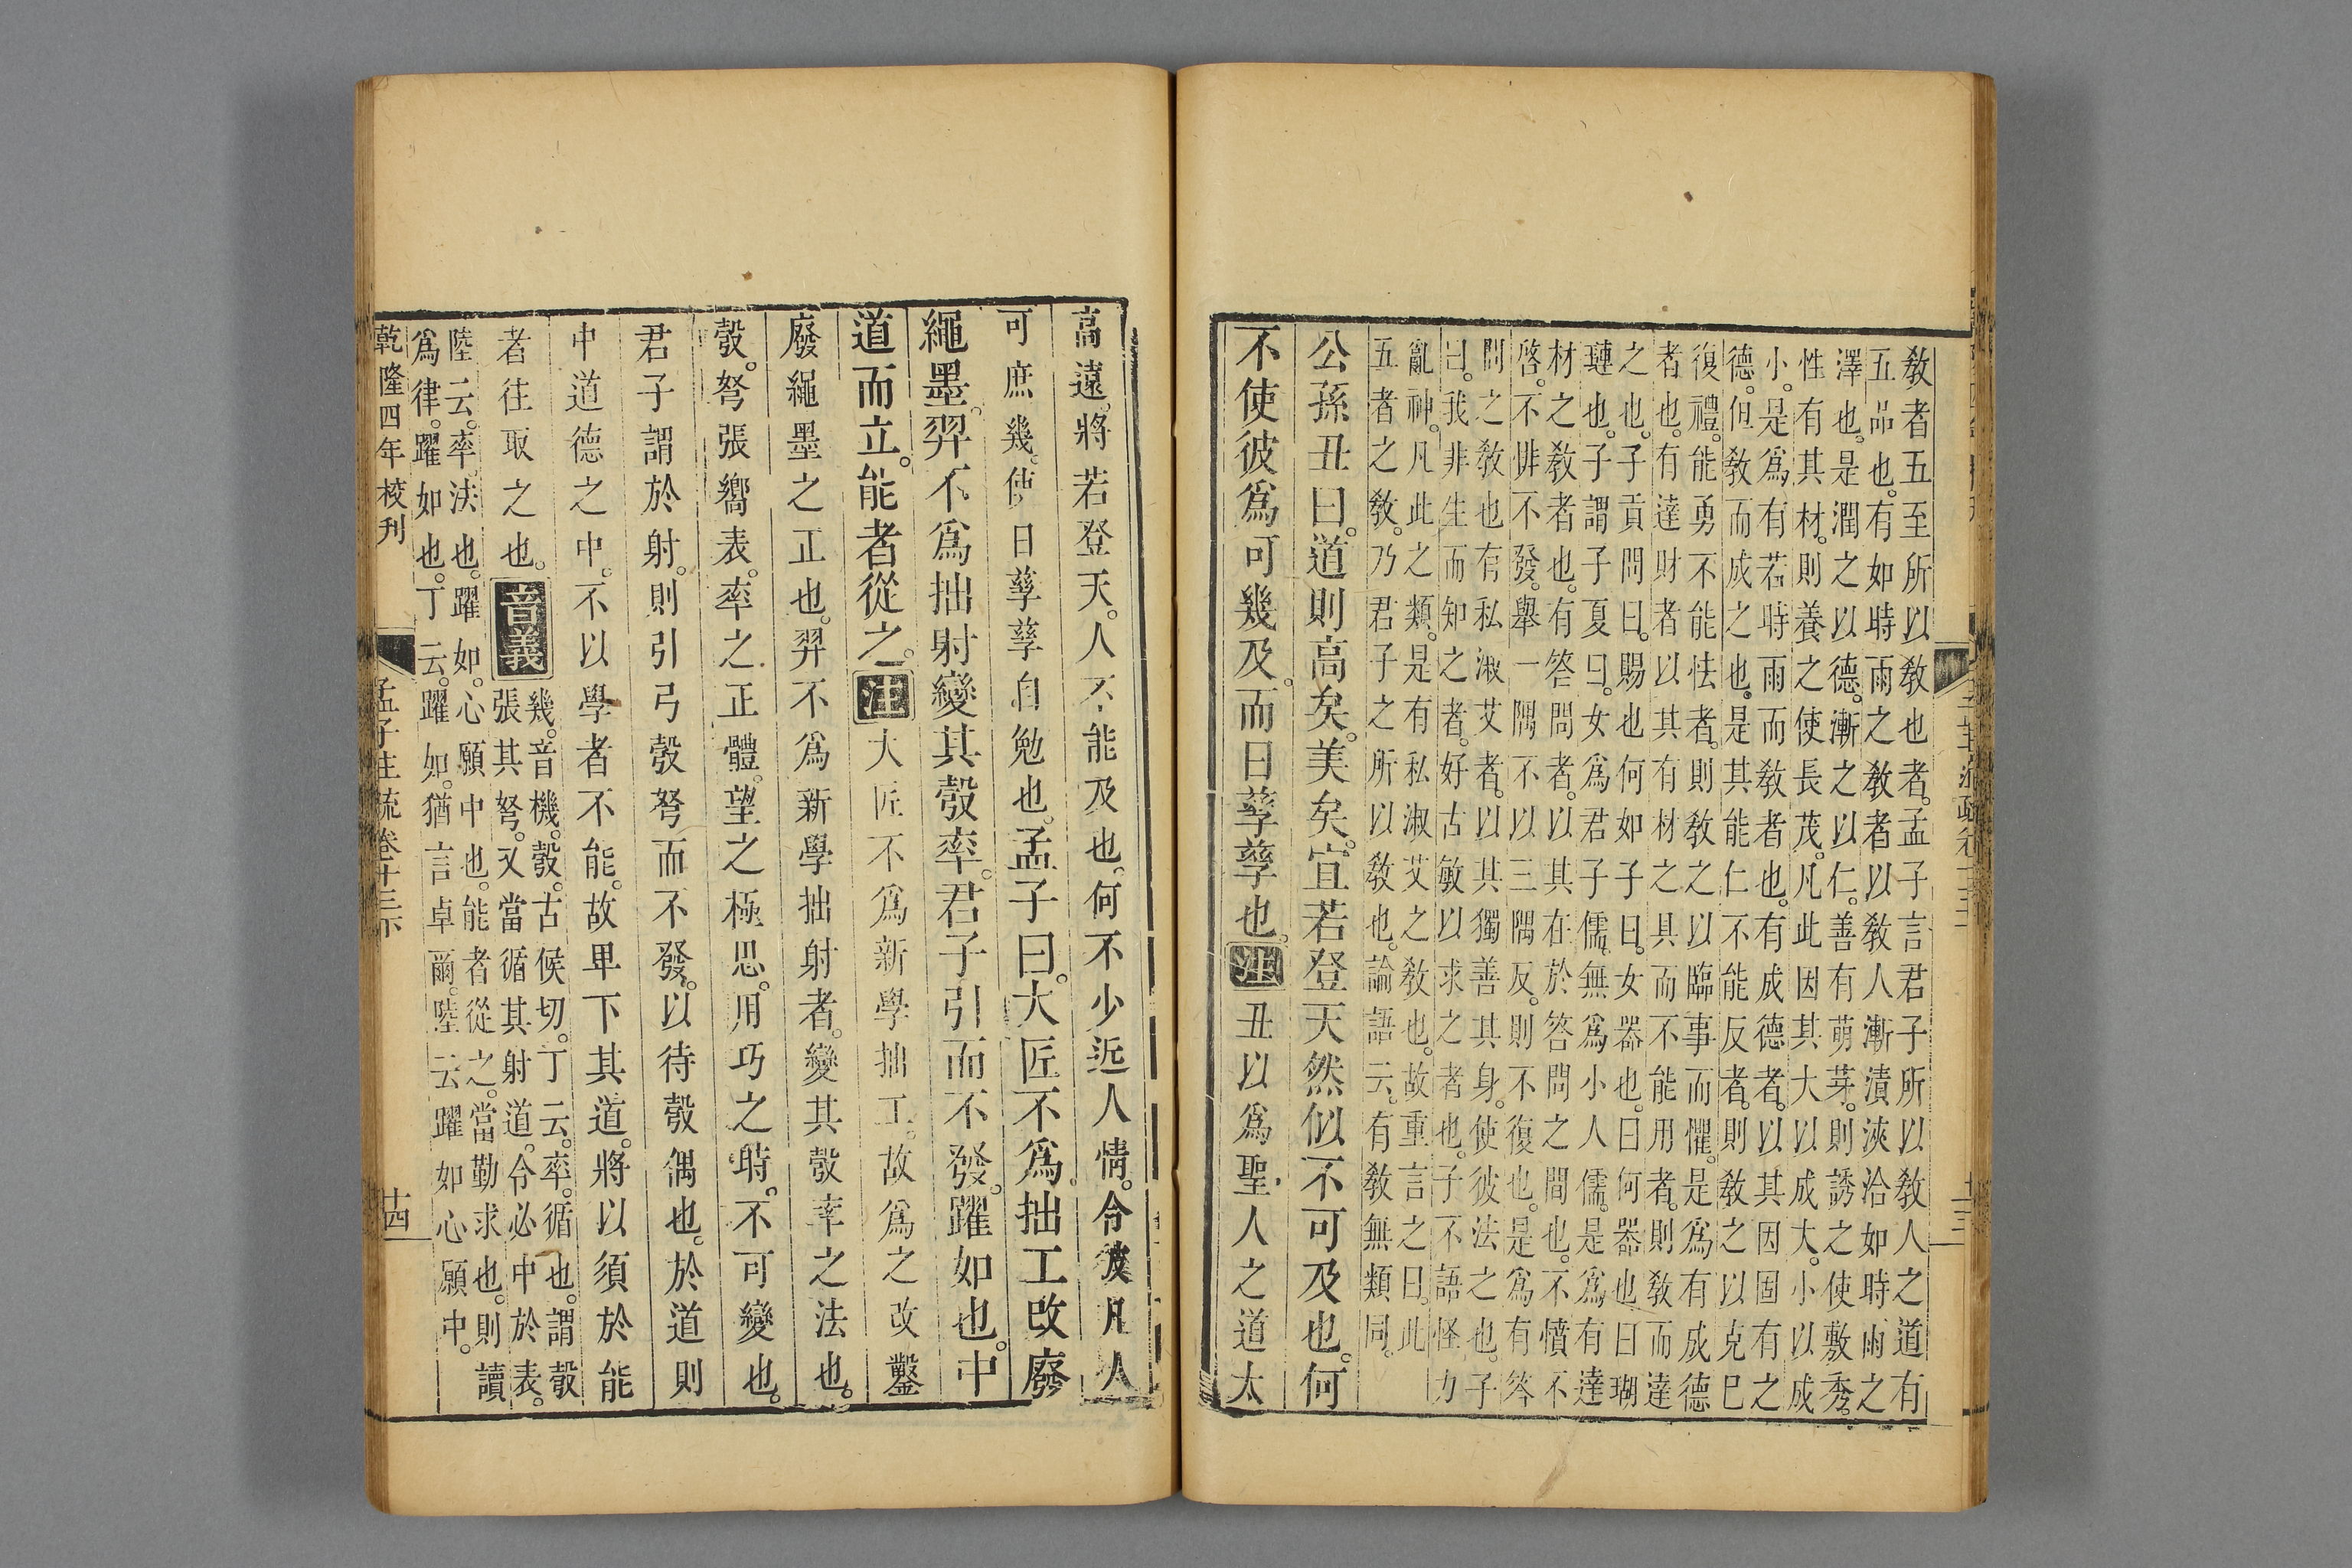 教者五至所以教也者。孟子言君子所以教人之道有
五品也。有如時雨之教者以教人漸漬浹洽如時雨之
澤也。是潤之以德。漸之以仁。善有萌芽。則誘之使敷秀。
性有其材。則養之使長茂。凡此因其大以成大。小以成
小。是爲有若時雨而教者也。有成德者。以其因固有之
德。但教而成之也。是其能仁不能反者。則教之以克己
復禮。能勇不能怯者。則教之以臨事而懼。是爲有成德
者也。有達財者以其有材之具而不能用者。則教而達
之也。子貢問曰。賜也何如子曰。女器也。曰何器也曰瑚
璉也。子謂子夏曰。女爲君子儒。無爲小人儒。是爲有達
材之教者也。有答問者。以其在於答問之間也。不憤不
啓。不悱不發。舉一隅不以三隅反。則不復也。是爲有答
問之教也有私淑艾者。以其獨善其身。使彼法之也。子
曰。我非生而知之者。好古敏以求之者也。子不語怪力
亂神。凡此之類。是有私淑艾之教也。故重言之曰。此
五者之教。乃君子之所以教也。論語云。有教無類同。
公孫丑曰。道則高矣。美矣。宜若登天然似不可及也。何
不使彼爲可幾及。而日孳孳也。注丑以爲聖人之道太
高遠。將若登天。人不能及也。何不少近人情。令彼凡人
可庶幾。使日孳孳自勉也。孟子曰。大匠不爲拙工改廢
繩墨。羿不爲拙射變其彀率。君子引而不發。躍如也。中
道而立。能者從之。注大匠不爲新學拙工。故爲之改鑿
廢繩墨之正也。羿不爲新學拙射者。變其彀率之法也。
彀。弩張嚮表。率之正體。望之極思。用巧之時。不可變也。
君子謂於射。則引弓彀弩而不發。以待彀偶也。於道則
中道德之中。不以學者不能。故卑下其道。將以須於能
者往取之也。音義幾。音機。彀。古候切。丁云。率。循也。謂彀
張其弩。又當循其射道。令必中於表。
陸云。率法也。躍如。心願中也。能者從之。當勤求也。則讀
爲律。躍如也。丁云。躍如。猶言卓爾。陸云躍如心願中。
乾隆四年校刊
孟子注疏卷十三下
十四